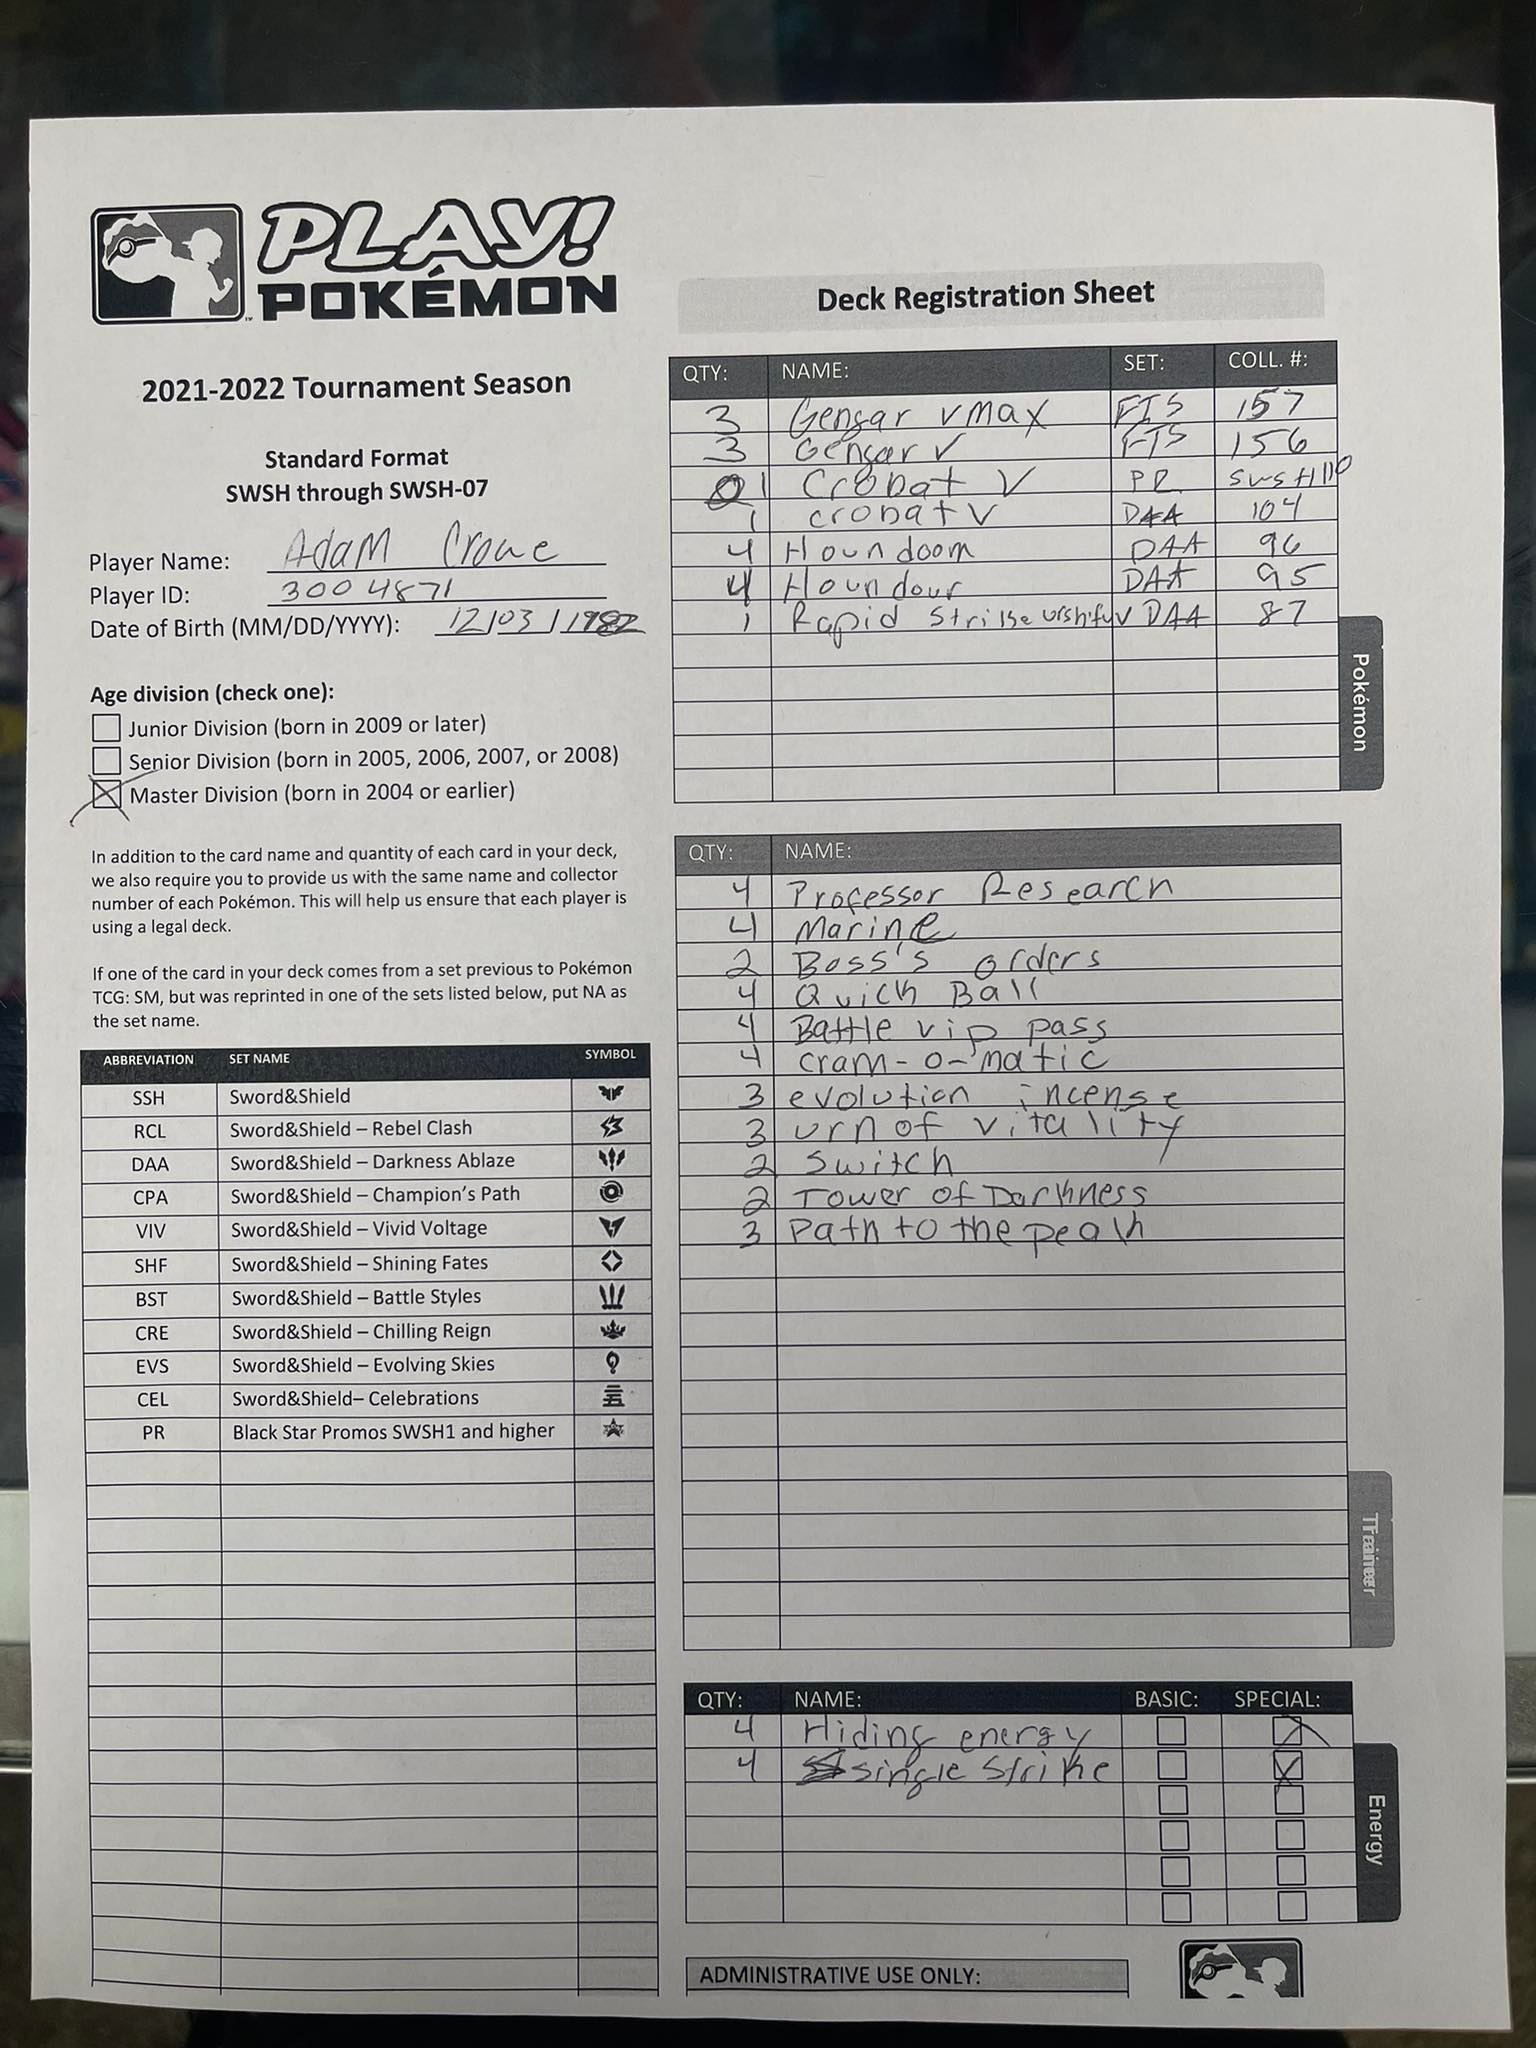 PLAY!
POKÉMON
Deck Registration Sheet
2021-2022 Tournament Season
Standard Format
SWSH through SWSH-07
Player Name: Adam Crowe
Player ID: 3004871
Date of Birth (MM/DD/YYYY): 12/03/1982
Age division (check one):
Junior Division (born in 2009 or later)
Senior Division (born in 2005, 2006, 2007, or 2008)
Master Division (born in 2004 or earlier)
In addition to the card name and quantity of each card in your deck,
we also require you to provide us with the same name and collector
number of each Pokémon. This will help us ensure that each player is
using a legal deck.
If one of the card in your deck comes from a set previous to Pokémon
TCG: SM, but was reprinted in one of the sets listed below, put NA as
the set name.
ABBREVIATION SET NAME SYMBOL
SSH Sword&Shield
RCL Sword&Shield – Rebel Clash
DAA Sword&Shield – Darkness Ablaze
CPA Sword&Shield – Champion's Path
VIV Sword&Shield – Vivid Voltage
SHF Sword&Shield – Shining Fates
BST Sword&Shield – Battle Styles
CRE Sword&Shield – Chilling Reign
EVS Sword&Shield – Evolving Skies
CEL Sword&Shield– Celebrations
PR Black Star Promos SWSH1 and higher
QTY: NAME: SET: COLL. #:
3 Gengar vmax FTS 157
3 Gengar V FTS 156
1 Crobat V PR SWSH110
1 crobat V DAA 104
4 Houndoom DAA 96
4 Houndour DAA 95
1 Rapid Strike urshifu V DAA 87
Pokémon
QTY: NAME:
4 Professor Research
4 Marine
2 Boss's orders
4 Quick Ball
4 Battle vip pass
4 cram-o-matic
3 evolution incense
3 urn of vitality
2 Switch
2 Tower of Darkness
3 Path to the peak
Trainer
QTY: NAME: BASIC: SPECIAL:
4 Hiding energy
4 single Strike
Energy
ADMINISTRATIVE USE ONLY: